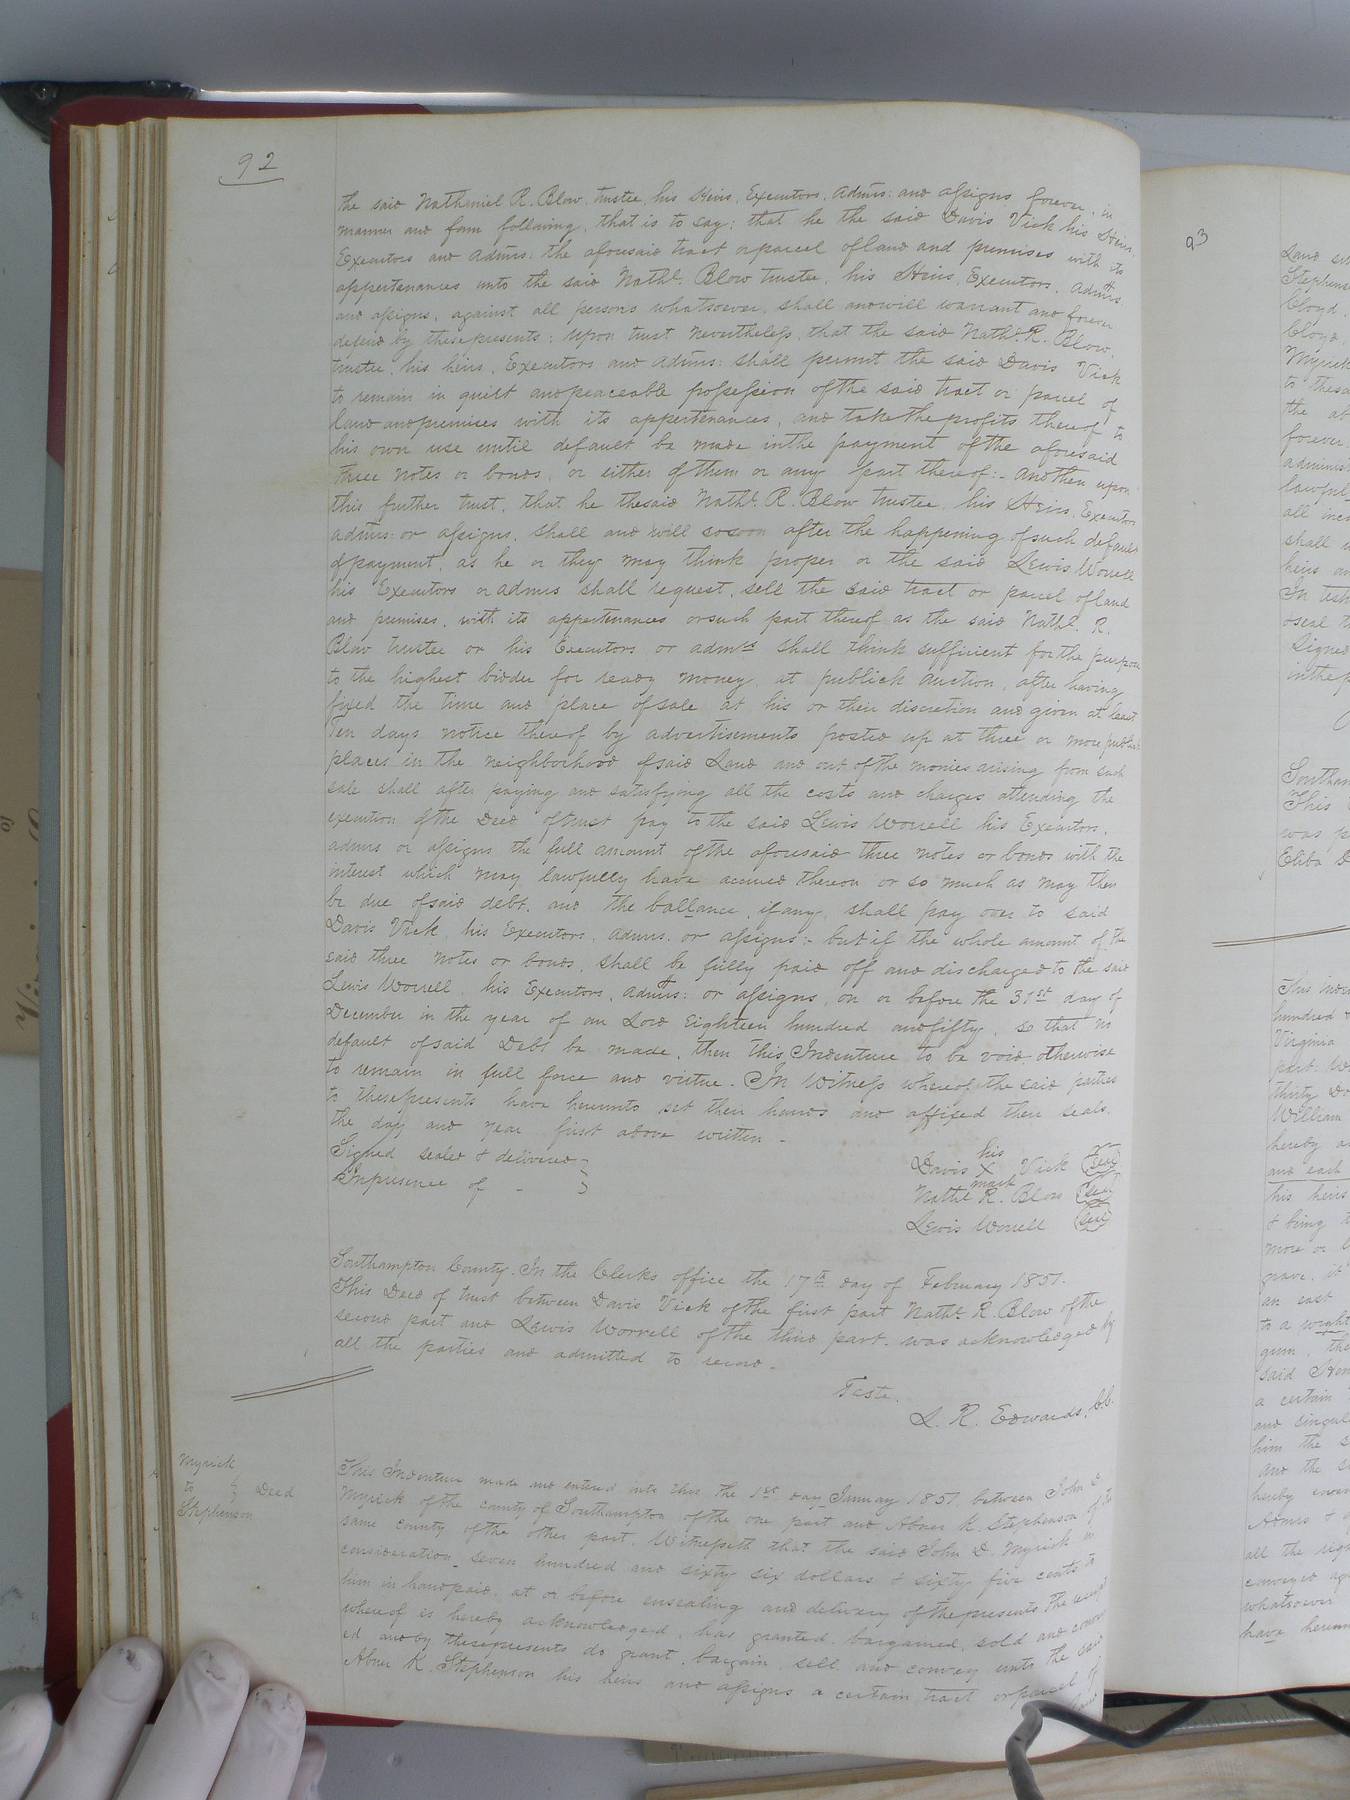 92
the said Nathaniel R. Blow, trustee, his Heirs, Executors, Adms: and assigns forever, in
manner and form following, that is to say: that he the said Davis Vick his Heirs,
Executors and Adms: the aforesaid tract or parcel of land and premises with its
appertenances unto the said Nathl. Blow trustee, his Heirs, Executors, Admrs,
and assigns, against all persons whatsoever, shall and will warrant and forever
defend by these presents: Upon trust nevertheless, that the said Nathl. R. Blow,
trustee, his heirs, Executors and Adms: shall permit the said Davis Vick
to remain in quiet and peaceable possession of the said tract or parcel of
land and premises with its appertenances, and take the profits thereof to
his own use until default be made in the payment of the aforesaid
three notes or bonds, or either of them or any part thereof:- And then upon
this further trust, that he the said Nathl. R. Blow trustee, his Heirs, Executors
adms: or assigns, shall and will so soon after the happening of such default
of payment, as he or they may think proper or the said Lewis Worrell
his Executors or adms shall request, sell the said tract or parcel of land
and premises, with its appertenances or such part thereof as the said Nathl. R.
Blow trustee or his Executors or admrs shall think sufficient for the purpose
to the highest bidder for ready money, at publick auction, after having
fixed the time and place of sale at his or their discretion and given at least
Ten days notice thereof by advertisements posted up at three or more publick
places in the neighborhood of said Land and out of the monies arising from such
sale shall after paying and satisfying all the costs and charges attending the
execution of the Deed of trust pay to the said Lewis Worrell his Executors,
adms or assigns the full amount of the aforesaid three notes or bonds with the
interest which may lawfully have accrued thereon or so much as may then
be due of said debt, and the ballance, if any, shall pay over to said
Davis Vick, his Executors, adms. or assigns:- but if the whole amount of the
said three notes or bonds, shall be fully paid off and discharged to the said
Lewis Worrell, his Executors, adms: or assigns, on or before the 31st day of
December in the year of our Lord Eighteen hundred and fifty, so that no
default of said Debt be made, then this Indenture to be void otherwise
to remain in full force and virtue. In Witness whereof the said parties
to these presents have hereunto set their hands and affixed their seals
the day and year first above written -
Signed sealed & delivered
In presence of -
his
Davis X Vick seal
mark
Nathl R. Blow seal
Lewis Worrell seal
Southampton County. In the Clerks office the 17th day of February 1851.
This Deed of trust between Davis Vick of the first part Nathl. R. Blow of the
second part and Lewis Worrell of the third part was acknowledged by
all the parties and admitted to record.
Teste.
L. R. Edwards, C.C.
Myrick
to Deed
Stephenson
This Indenture made and entered into this the 1st day January 1851 between John D.
Myrick of the county of Southampton of the one part and Abner K. Stephenson of the
same county of the other part. Witnesseth that the said John D. Myrick in
consideration seven hundred and sixty six dollars & sixty five cents to
him in hand paid, at or before ensealing and delivery of the presents the receipt
whereof is hereby acknowledged, has granted, bargained, sold and convey
ed and by these presents do grant, bargain, sell and convey unto the said
Abner K. Stephenson his heirs and assigns a certain tract or parcel of
land
93
Cloyd,
Cloyd,
Myrick
the
forever,
lawful
all
shall
In
Signed
This
was
Eliba
hundred
Virginia
part.
thirty
William
hereby
and each
his heirs
& being
more or
grave, it
an east
to a
gum, the
said
a certain
and
him the
and the
hereby
Admrs. &
all the
conveyed
whatsoever
have